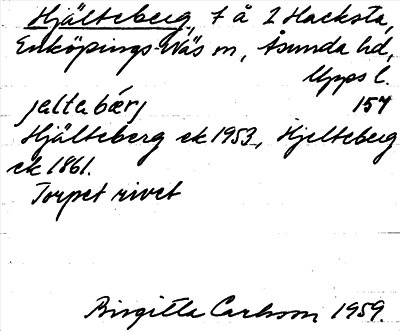 Hjälteberg, t å 2 Hacksta,
Enköpings-Näs sn, Åsunda hd,
Upps l.
jältabærj 154
Hjälteberg ek 1953, Hjelteberg
ek 1861.
Torpet rivet
Birgitta Carlsson 1959.